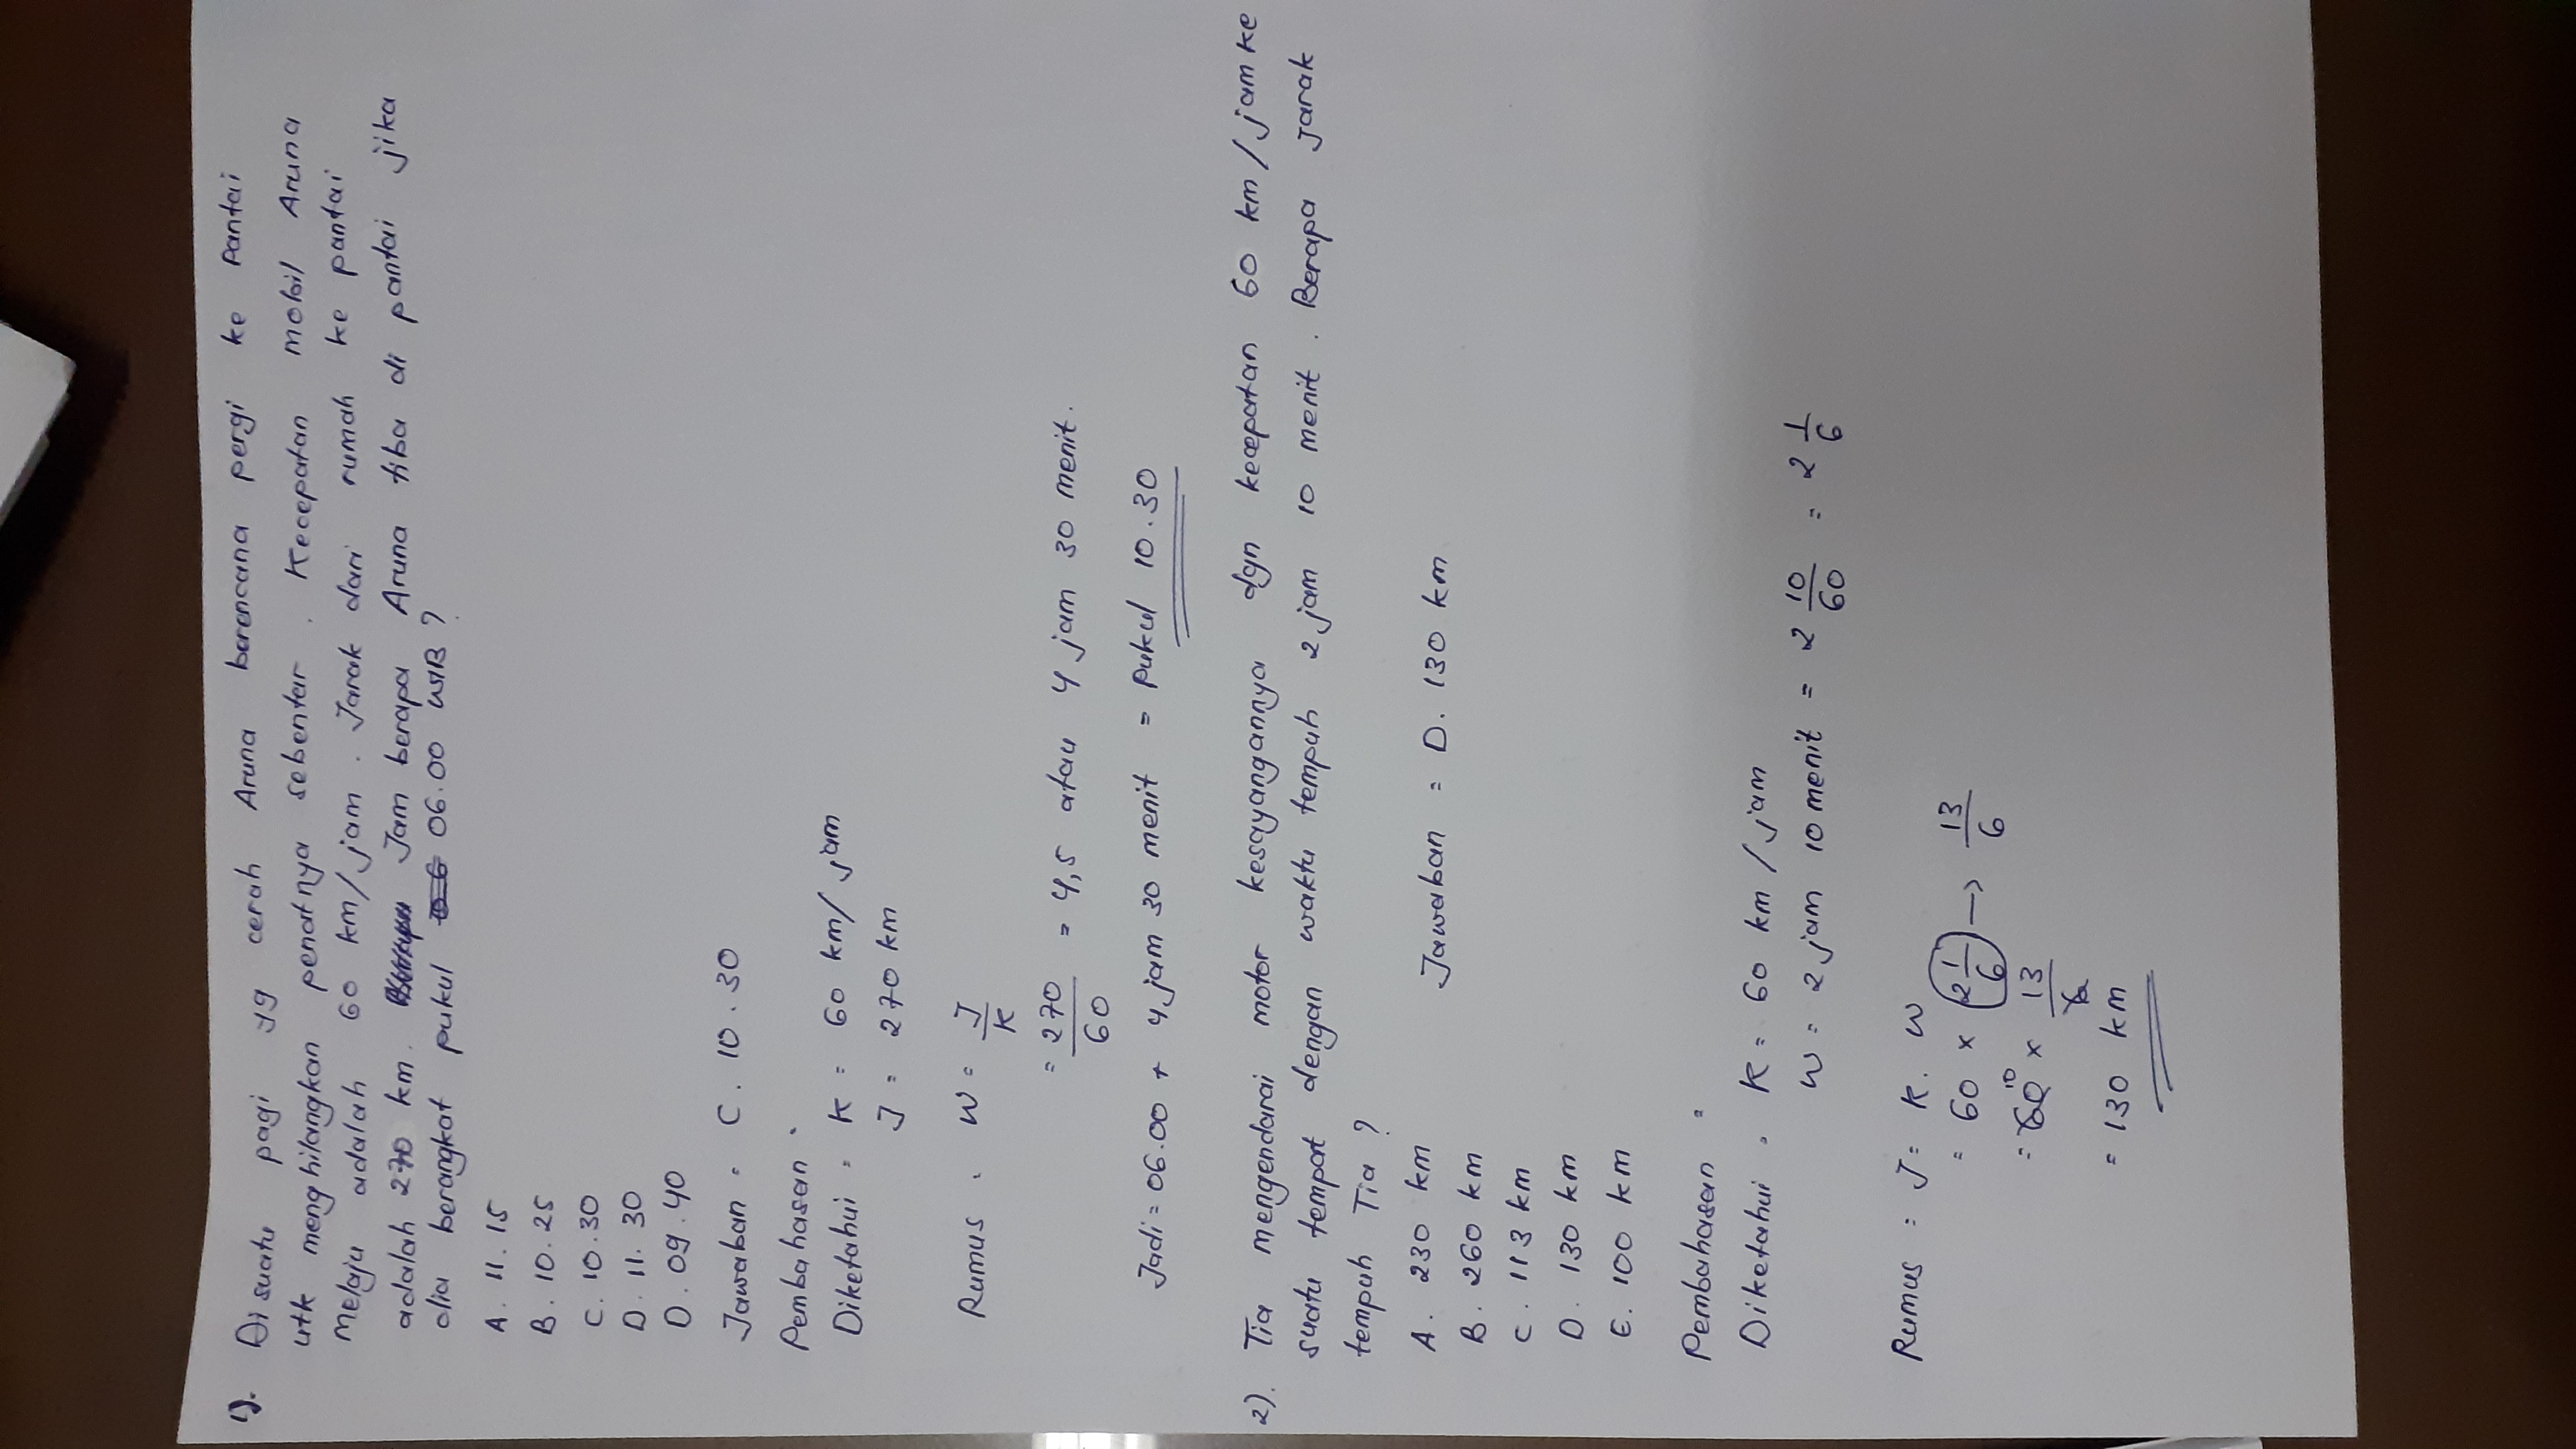 1). Di suatu pagi yg cerah Aruna berencana pergi ke pantai
utk menghilangkan penatnya sebentar. Kecepatan mobil Aruna
melaju adalah 60 km/jam. Jarak dari rumah ke pantai
adalah 270 km. Jam berapa Aruna tiba di pantai jika
dia berangkat pukul 06.00 WIB?
A. 11.15
B. 10.25
C. 10.30
D. 11.30
D. 09.40
Jawaban : C. 10.30
Pembahasan :
Diketahui : K = 60 km/jam
J = 270 km
Rumus : W = J/K
= 270/60 = 4,5 atau 4 jam 30 menit.
Jadi = 06.00 + 4 jam 30 menit = pukul 10.30
2). Tia mengendarai motor kesayangannya dgn kecepatan 60 km/jam ke
suatu tempat dengan waktu tempuh 2 jam 10 menit. Berapa jarak
tempuh Tia?
A. 230 km
B. 260 km
C. 113 km
D. 130 km
E. 100 km
Jawaban = D. 130 km
Pembahasan :
Diketahui : K = 60 km/jam
W = 2 jam 10 menit = 2 10/60 = 2 1/6
Rumus : J = K . W
= 60 x 2 1/6 → 13/6
= 60 10 x 13/6
= 130 km